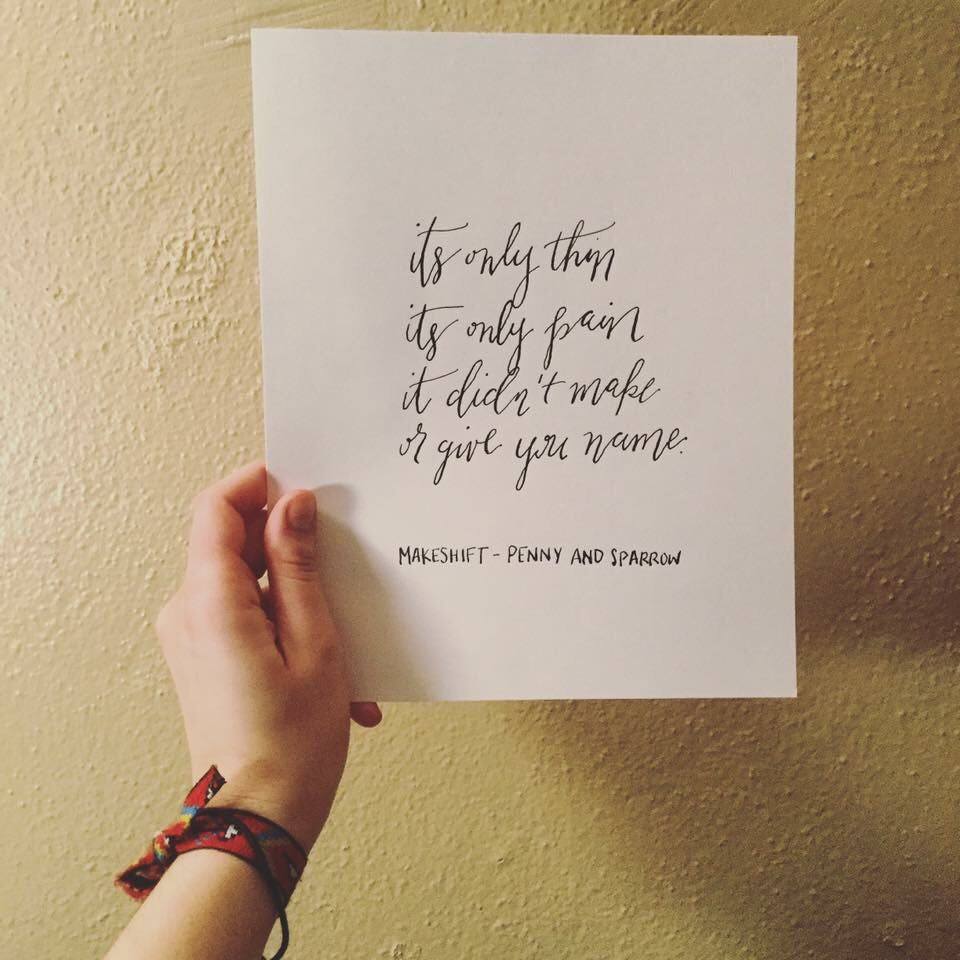 its only thin
its only pain
it didn't make
or give you name.
MAKESHIFT - PENNY AND SPARROW